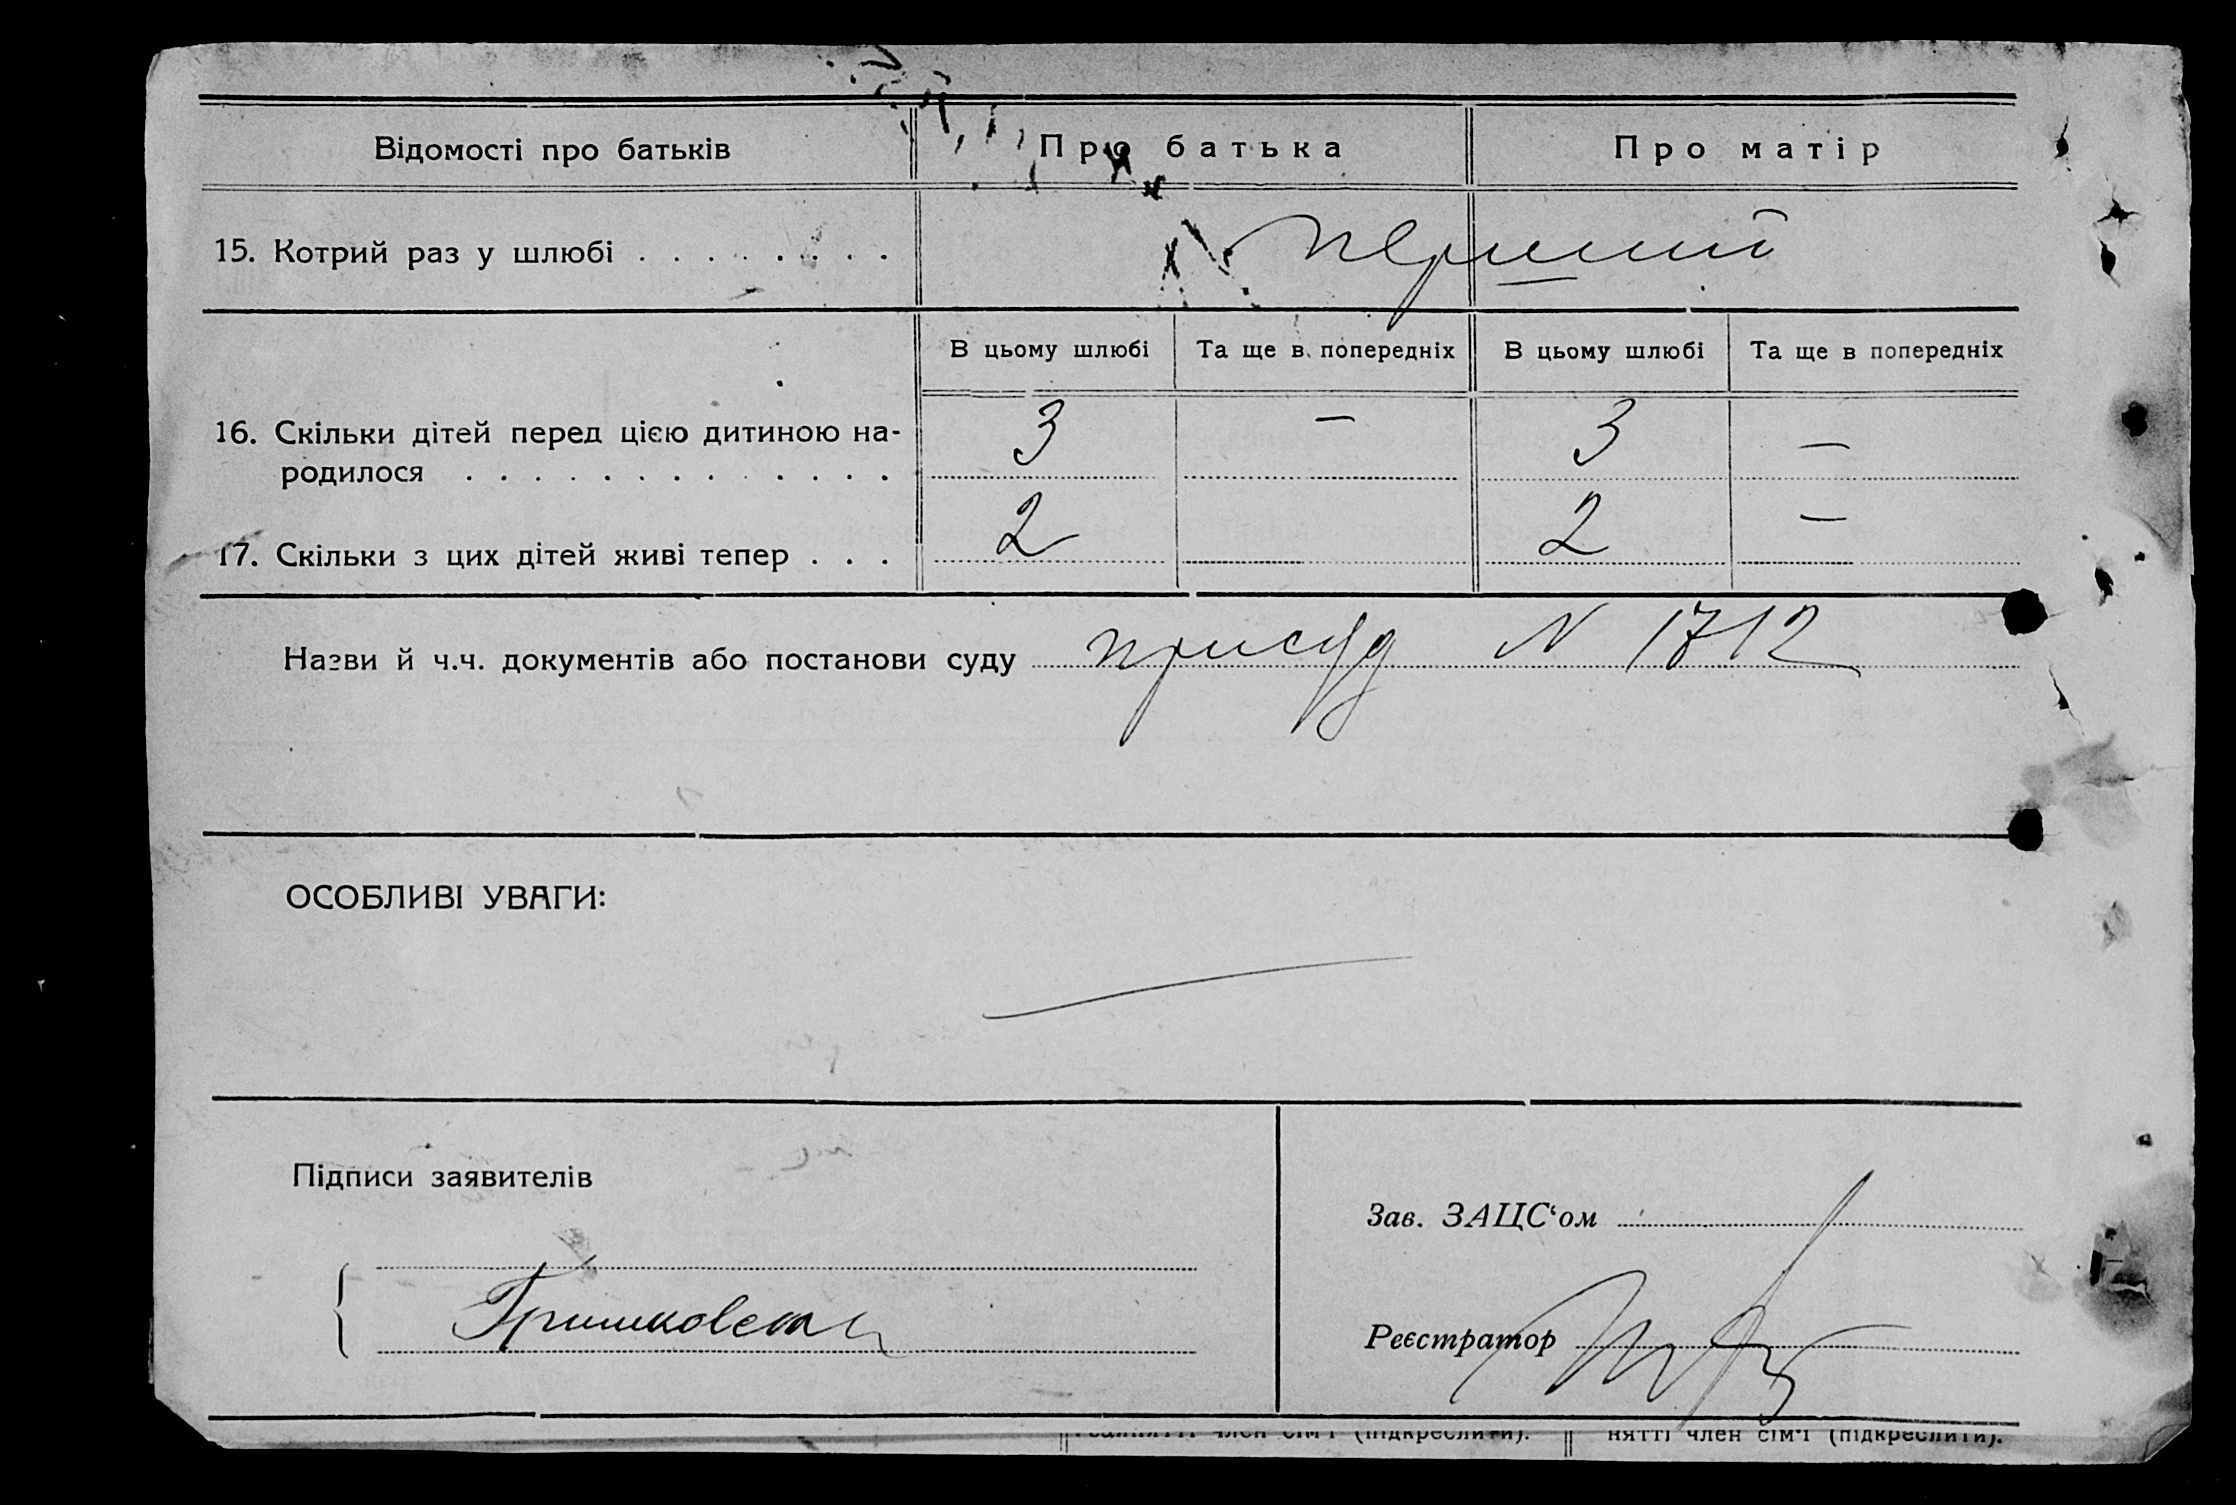 Відомості про батьків
Про батька
Про матір
15. Котрий раз у шлюбі . . . . . . . .
перший
В цьому шлюбі
Та ще в попередніх
В цьому шлюбі
Та ще в попередніх
16. Скільки дітей перед цією дитиною на-
родилося . . . . . . . . . . . . .
3
—
3
—
17. Скільки з цих дітей живі тепер . . .
2
2
—
Назви й ч.ч. документів або постанови суду присуд N 1712
ОСОБЛИВІ УВАГИ:
Підписи заявителів
Зав. ЗАЦС‘ом
Реєстратор
член сім'ї (підкреслити).
нятті член сім'ї (підкреслити).